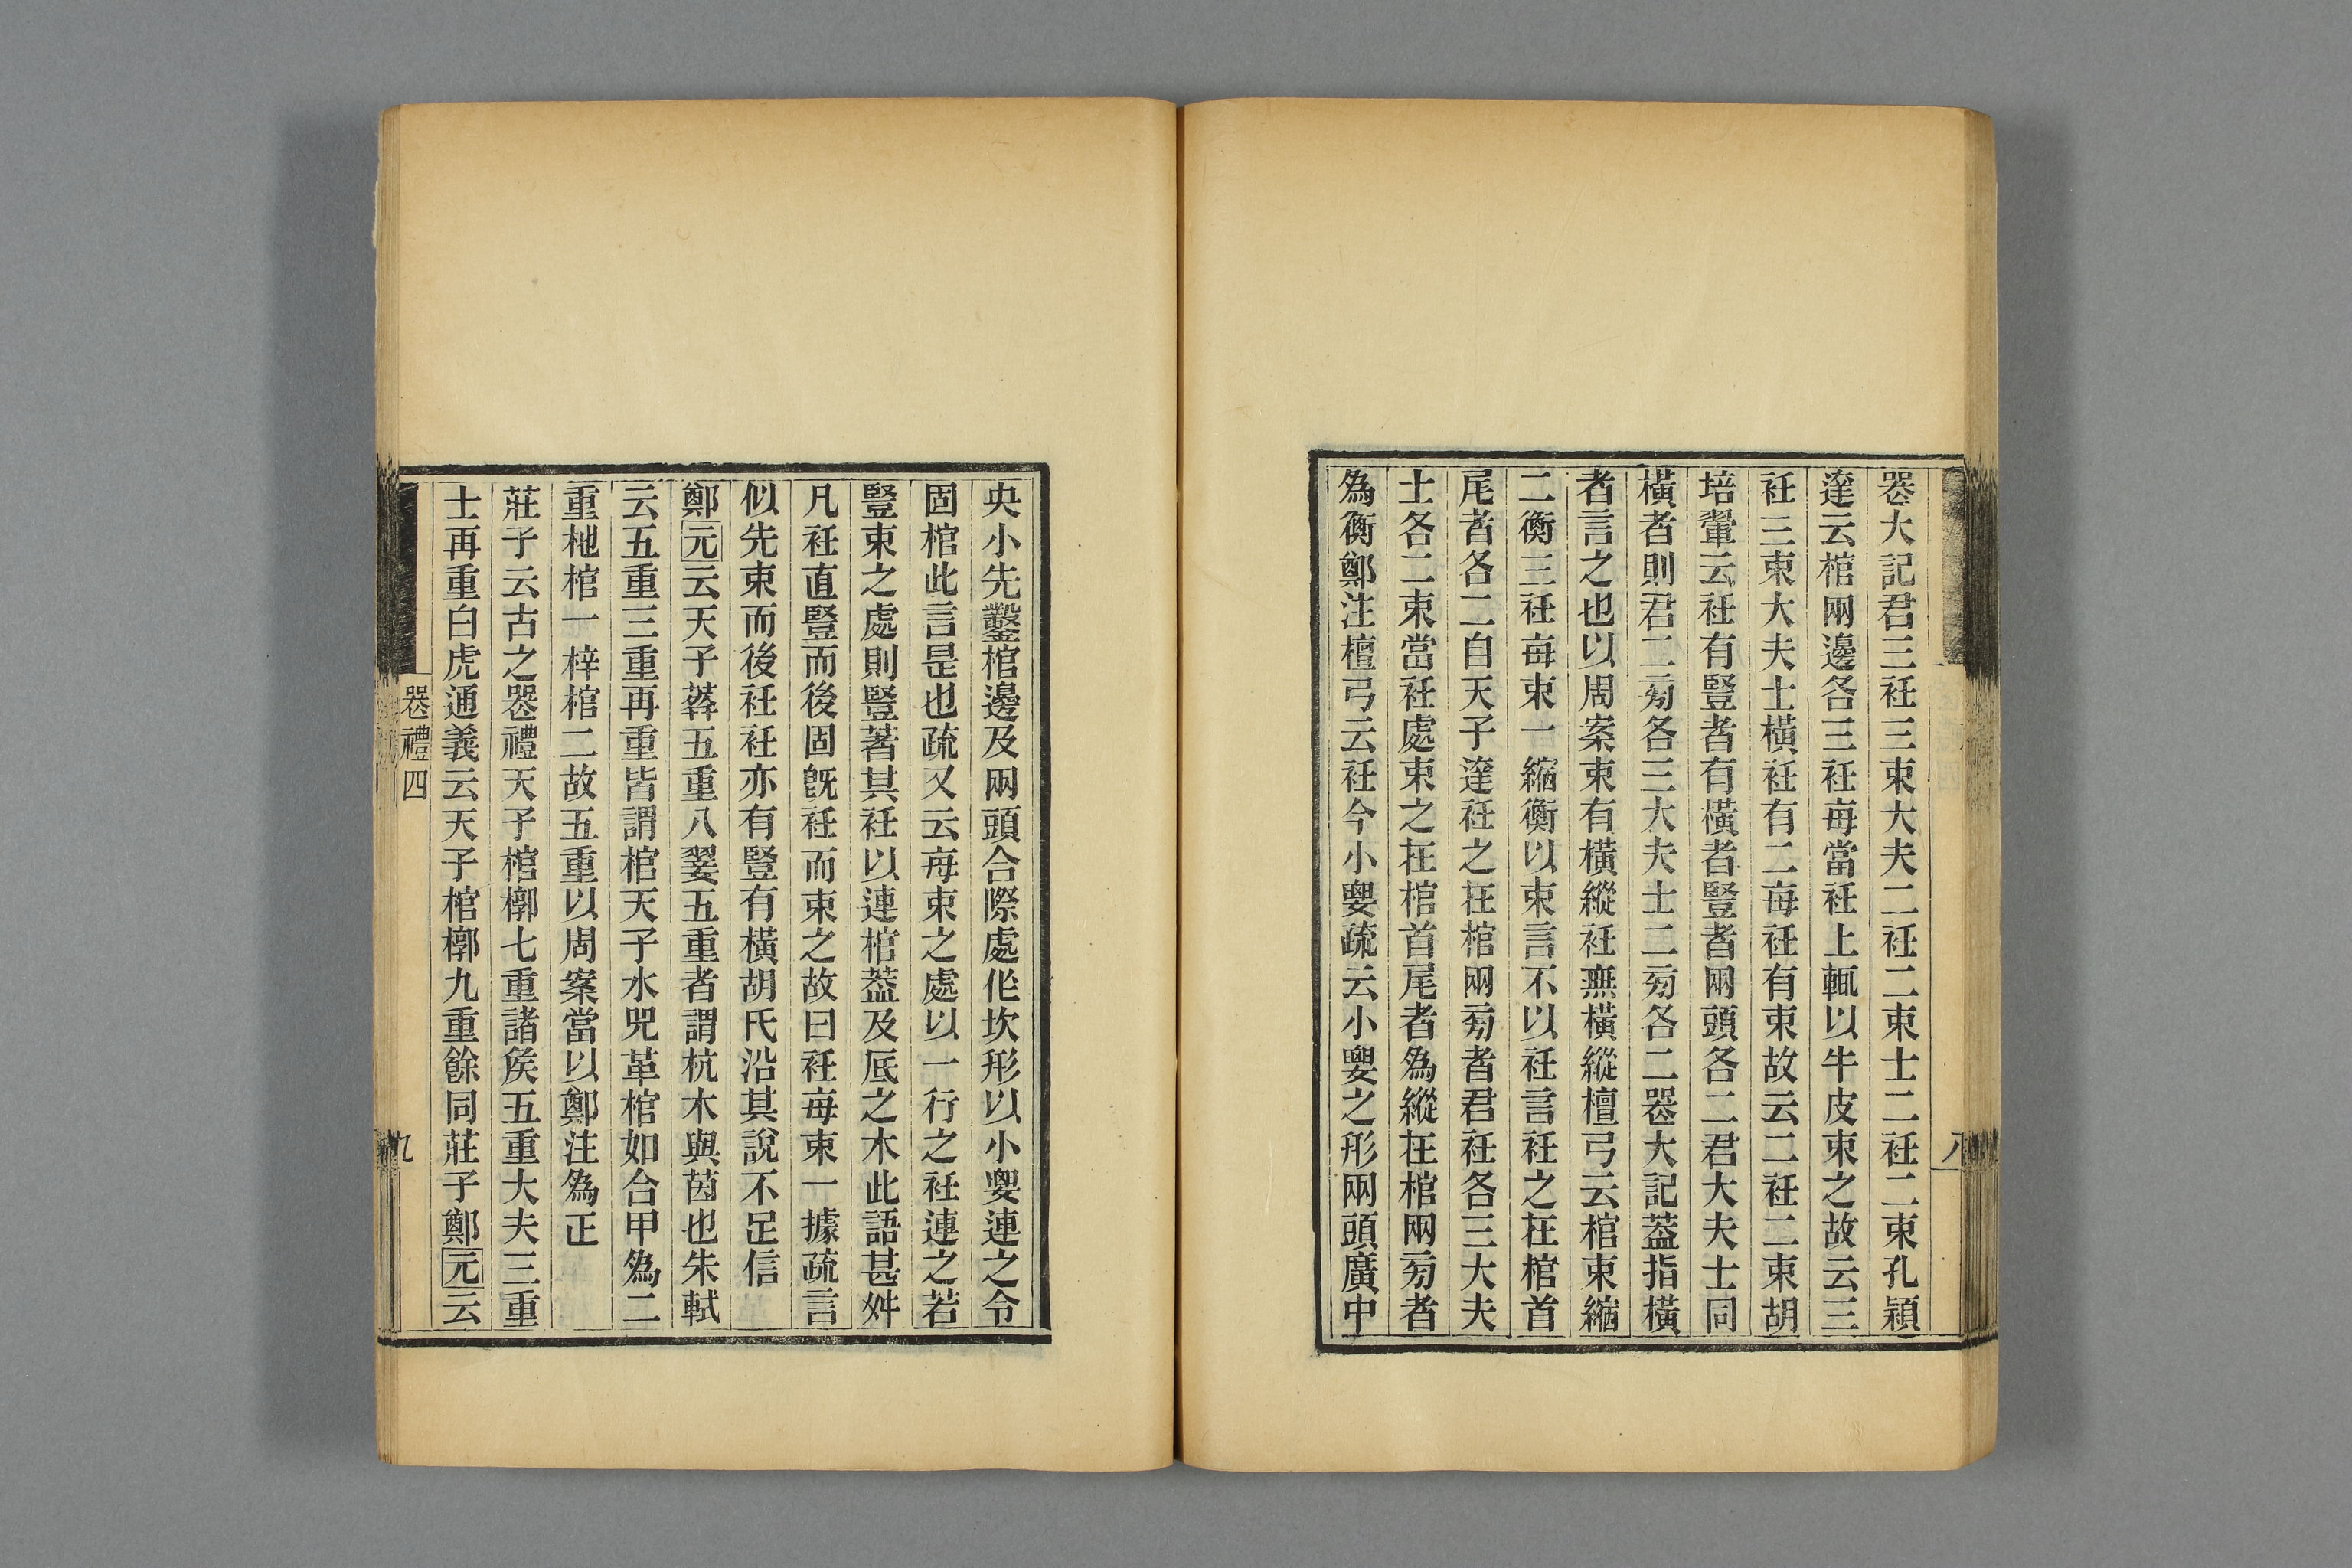 喪大記君三衽三束大夫二衽二束士二衽二束孔穎
達云棺兩邊各三衽每當衽上輒以牛皮束之故云三
衽三束大夫士橫衽有二每衽有束故云二衽二束胡
培翬云衽有豎者有橫者豎者兩頭各二君大夫士同
橫者則君二㫄各三大夫士二㫄各二喪大記蓋指橫
者言之也以周案束有橫縱衽無橫縱檀弓云棺束縮
二衡三衽每束一縮衡以束言不以衽言衽之在棺首
尾者各二自天子達衽之在棺兩㫄者君衽各三大夫
士各二束當衽處束之在棺首尾者爲縱在棺兩㫄者
爲衡鄭注檀弓云衽今小要疏云小要之形兩頭廣中
八
央小先鑿棺邊及兩頭合際處作坎形以小要連之令
固棺此言是也疏又云每束之處以一行之衽連之若
豎束之處則豎著其衽以連棺蓋及底之木此語甚舛
凡衽直豎而後固旣衽而束之故曰衽每束一據疏言
似先束而後衽衽亦有豎有橫胡氏沿其說不足信
鄭元云天子葬五重八翣五重者謂杭木與茵也朱軾
云五重三重再重皆謂棺天子水兕革棺如合甲爲二
重杝棺一梓棺二故五重以周案當以鄭注爲正
莊子云古之喪禮天子棺槨七重諸矦五重大夫三重
士再重白虎通義云天子棺槨九重餘同莊子鄭元云
喪禮四
九